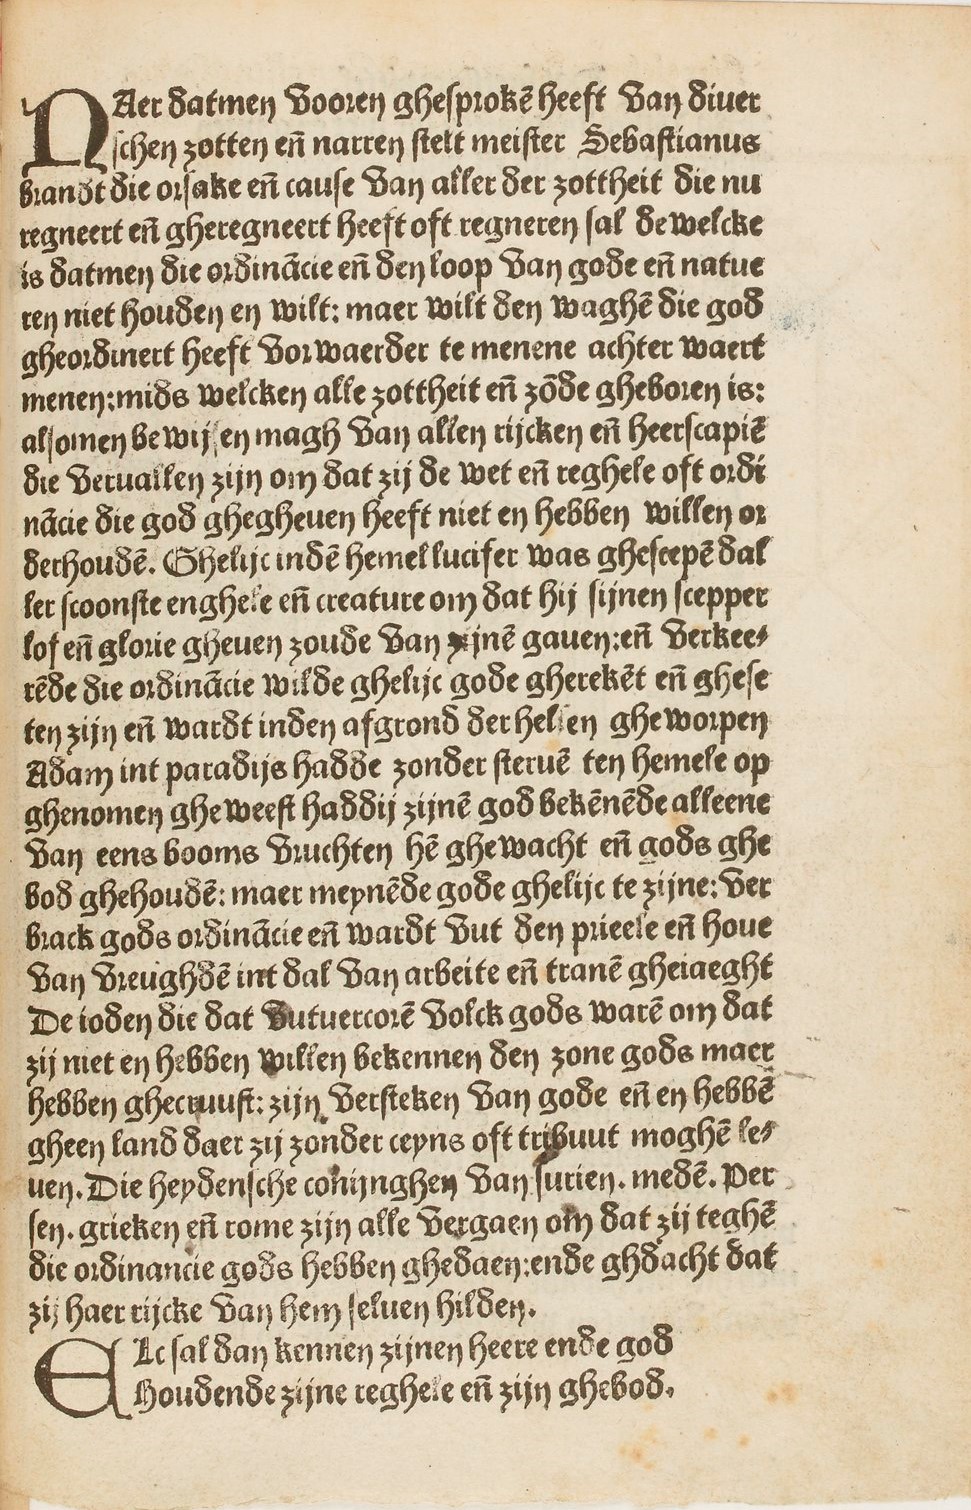 NAer datmen vooren ghesprokē heeft van diuer
schen zotten eñ narren stelt meister Sebastianus
brandt die orsake eñ cause van aller der zottheit die nu
regneert eñ gheregneert heeft oft regneren sal de welcke
is datmen die ordinācie eñ den loop van gode eñ natue
ren niet houden en wilt: maer wilt den waghē die god
gheordinert heeft vorwaerder te menene achter waert
menen: mids welcken alle zottheit eñ zōde gheboren is:
alsomen bewijsen magh van allen rijcken eñ heerscapiē
die veruallen zijn om dat zij de wet eñ reghele oft ordi
nācie die god ghegheuen heeft niet en hebben willen or
derhoudē. Ghelijc indē hemel lucifer was ghescepē dal
ler scoonste enghele eñ creature om dat hij sijnen scepper
lof eñ glorie gheuen zoude van zijnē gauen: eñ verkee-
rēde die ordinācie wilde ghelijc gode gherekēt eñ ghese
ten zijn eñ wardt inden afgrond der hellen gheworpen
Adam int paradijs hadde zonder steruē ten hemele op
ghenomen gheweest haddij zijnē god bekēnēde alleene
van eens booms vruchten hē ghewacht eñ gods ghe
bod ghehoudē: maer meynēde gode ghelijc te zijne: ver
brack gods ordinācie eñ wardt vut den prieele eñ houe
van vreughdē int dal van arbeite eñ tranē gheiaeght
De ioden die dat vutuercorē volck gods warē om dat
zij niet en hebben willen bekennen den zone gods maer
hebben ghecruust: zijn versteken van gode eñ en hebbē
gheen land daer zij zonder ceyns oft tribuut moghē le-
uen. Die heydensche conijnghen van surien. medē. Per
sen. grieken eñ rome zijn alle vergaen om dat zij teghē
die ordinancie gods hebben ghedaen: ende ghdacht dat
zij haer rijcke van hem seluen hilden.
ELc sal dan kennen zijnen heere ende god
Houdende zijne reghele eñ zijn ghebod.